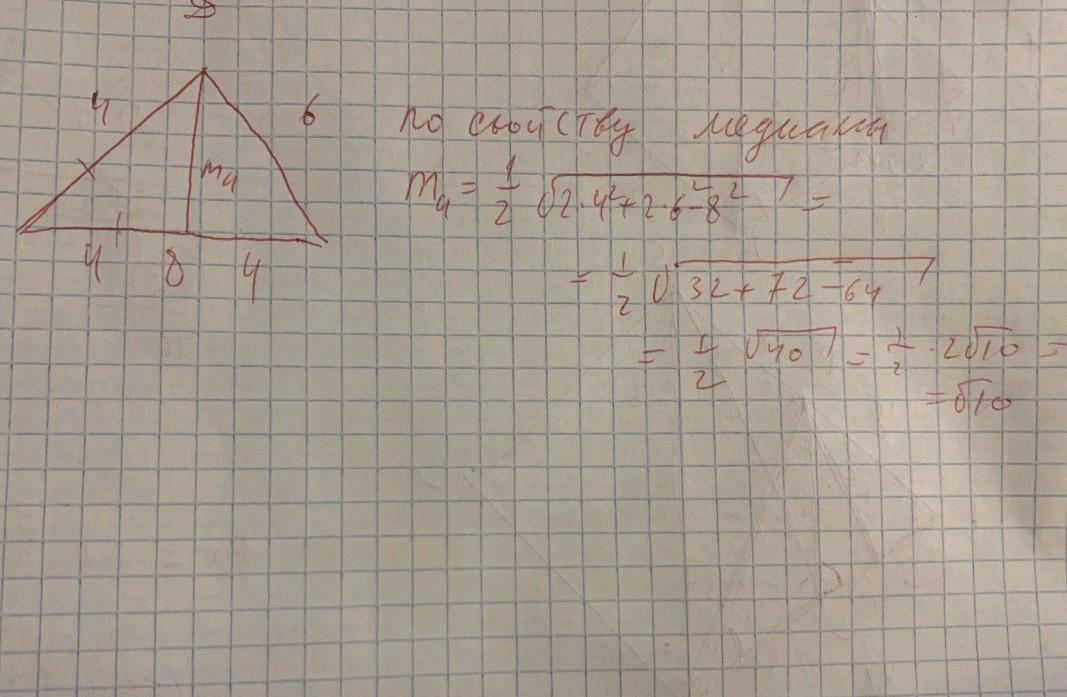 4
6
m₄
4 8 4
по свойству медианы
m₄ = 1/2 √(2·4²+2·6²-8²) =
= 1/2 √(32+72-64)
= 1/2 √40 = 1/2 · 2√10 =
= √10